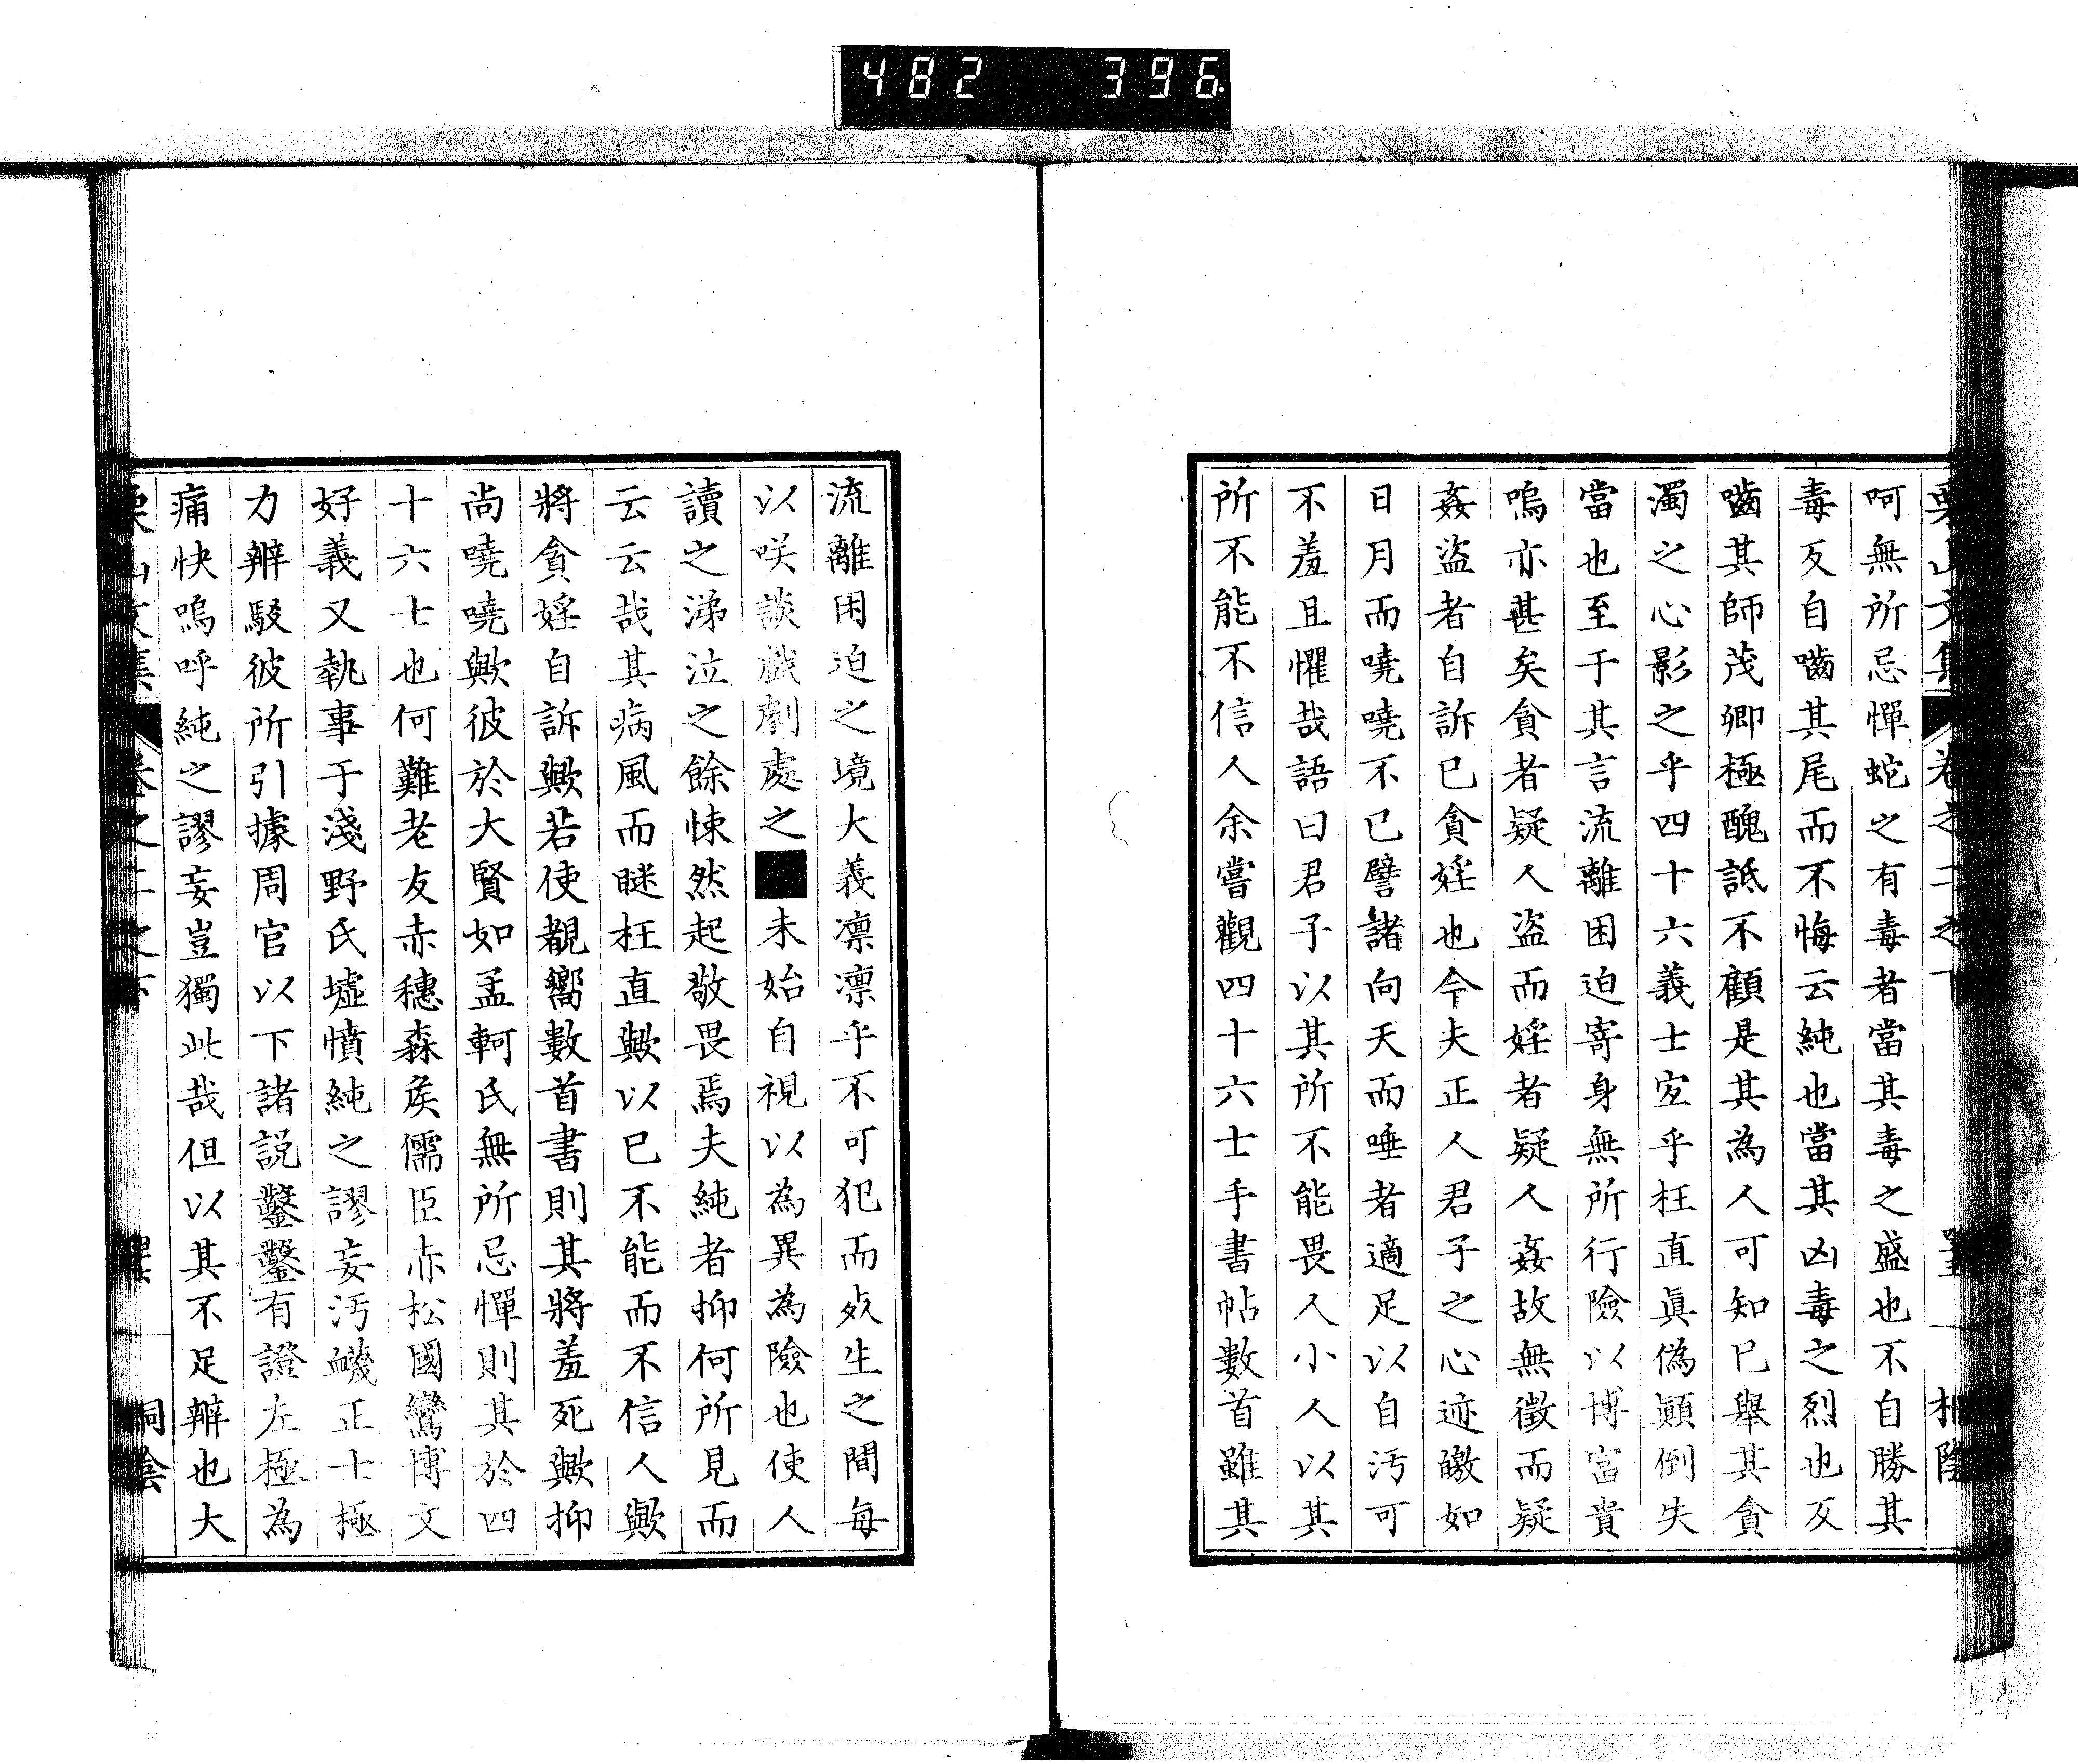 482 396
呵無所忌憚蛇之有毒者當其毒之盛也不自勝其
毒反自嚙其尾而不悔云純也當其凶毒之烈也反
嚙其師茂卿極醜詆不顧是其為人可知已舉其貪
濁之心影之乎四十六義士宜乎枉直眞偽顚倒失
當也至于其言流離困迫寄身無所行險以博富貴
嗚亦甚矣貪者疑人盜而婬者疑人姦故無徵而疑
姦盜者自訴已貪婬也今夫正人君子之心迹皦如
日月而嘵嘵不已譬諸向天而唾者適足以自汚可
不羞且懼哉語曰君子以其所不能畏人小人以其
所不能不信人余嘗觀四十六士手書帖數首雖其
流離困迫之境大義凛凛乎不可犯而死生之間每
以咲談戲劇處之■未始自視以為異為險也使人
讀之涕泣之餘悚然起敬畏焉夫純者抑何所見而
云云哉其病風而瞇枉直歟以已不能而不信人歟
將貪婬自訴歟若使覩嚮數首書則其將羞死歟抑
尚嘵嘵歟彼於大賢如孟軻氏無所忌憚則其於四
十六士也何難老友赤穗森矦儒臣赤松國鸞博文
好義又執事于淺野氏墟憤純之謬妄汚衊正士極
力辨駁彼所引據周官以下諸説鑿鑿有證左極為
痛快嗚呼純之謬妄豈獨此哉但以其不足辨也大
栗山文集 卷之二之下